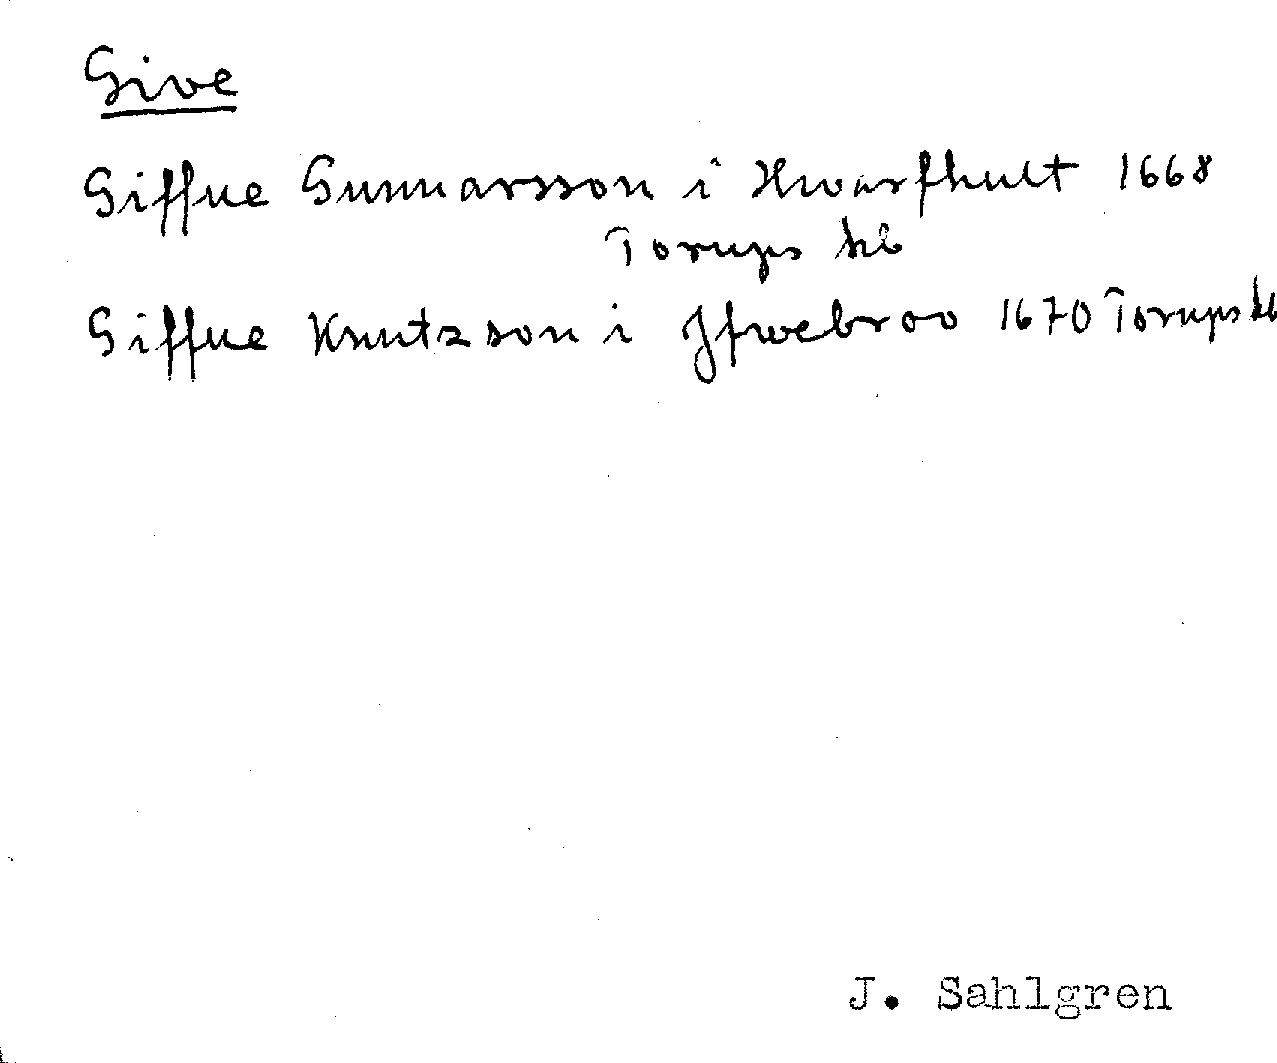 Give
Giffue Gunnarsson i Hwarfhult 1668
Torups kb
Giffue Knutzson i Jfwebroo 1670 Torups kb
J. Sahlgren